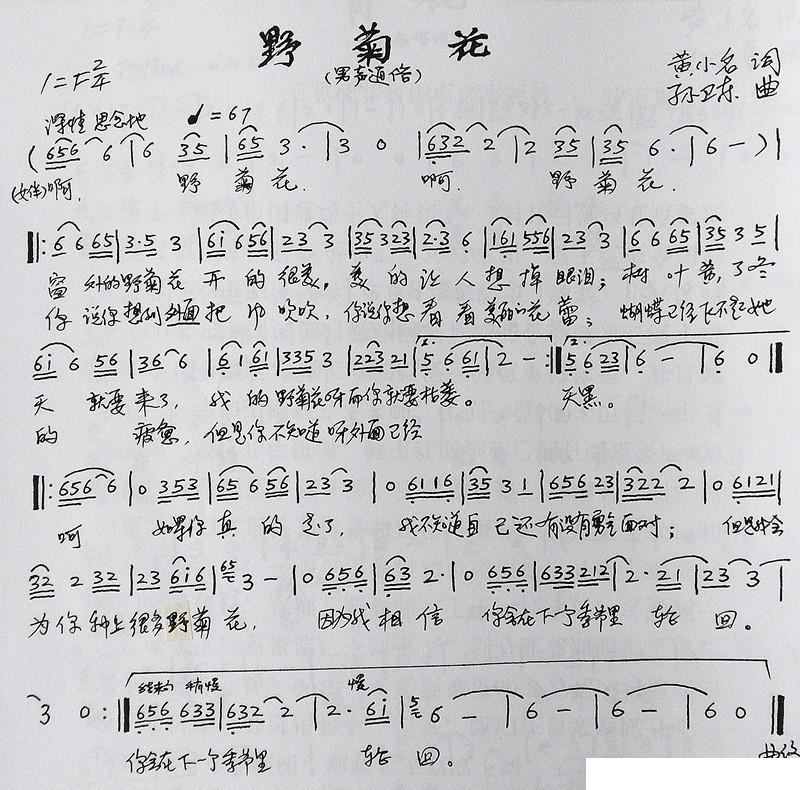 野 菊 花
(男声通俗)
1=F 2/4
黄小名 词
孙卫东 曲
深情思念地 ♩=67
(656 6 | 6 35 | 65 3· | 3 0 | 632 2 | 2 35 | 35 6· | 6 - ) |
(女伴)啊, 野 菊 花. 啊. 野 菊 花.
‖: 6 6 65 | 3·5 3 | 6i 6 56 | 23 3 | 35 323 | 2·3 6 | 161 556 | 23 3 | 6 6 65 | 35 3 5 |
窗 外的野菊花 开 的 很美, 美 的 让 人 想 掉 眼泪; 树 叶 黄,了冬
你 说你想到外面 把 吹吹, 你说你想 看 看 美丽的花 蕾; 蝴蝶已经飞不起她
6i 6 56 | 36 6 | 61 61 | 335 3 | 223 21 | 1. 5 6 61 | 2 - :‖ 2. 5 6 23 | 6 - | 6 0 ‖
天 就要 来了, 我 的 野菊花呀而你就要枯萎。 天黑。
的 疲惫, 但是你不知道呀外面已经
‖: 656 6 | 0 353 | 65 6 56 | 23 3 | 0 6116 | 35 3 1 | 656 23 | 322 2 | 0 6121 |
啊 如果你 真 的 走了, 我不知道自 己还有没有勇气面对; 但是我会
32 2 32 | 23 6i6 | 65 3 - | 0 656 | 63 2· | 0 656 | 633 212 | 2· 21 | 23 3 |
为你 种上很多野菊 花, 因为我 相 信 你会在下一个季节里 轮 回。
结束句 稍慢 慢
3 0 :‖ 656 633 | 632 2 | 2· 6i | 5 6 - | 6 - | 6 - | 6 0 ‖
你会在下一个季节里 轮 回。